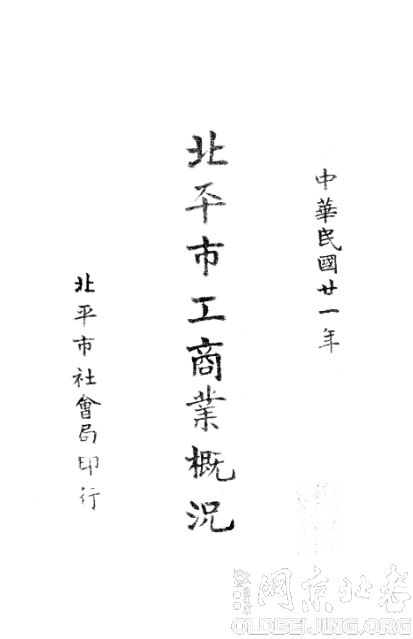 中華民國廿一年
北平市工商業概況
北平市社會局印行
老北京网
OLDBEIJING.ORG